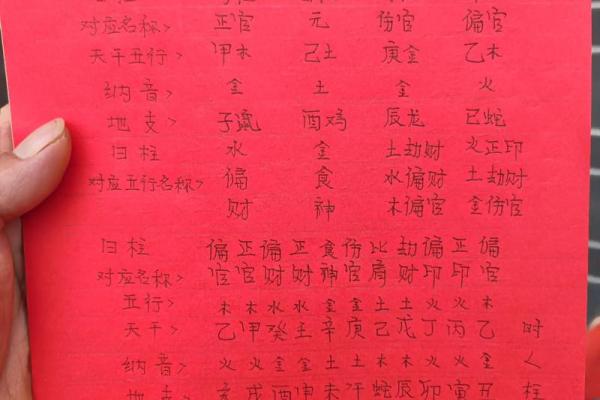 对应名称> 正官 元 伤官 偏官
天干五行> 甲木 己土 庚金 乙木
纳音> 金 土 金 火
地支> 子鼠 酉鸡 辰龙 巳蛇
日柱 水 金 土劫财 火正印
对应五行名称> 偏 食 水偏财 土劫财
财 神 木偏官 金伤官
日柱 偏正偏正食伤比劫偏正偏
对应名称> 官官财财神官肩财印印官
五行> 木木水水金金土土火火木
天干> 乙甲癸壬辛庚己戊丁丙乙 时
纳音> 火火金金土土木木火火金 く
地支> 亥戌酉申未午蛇辰卯寅丑 柱